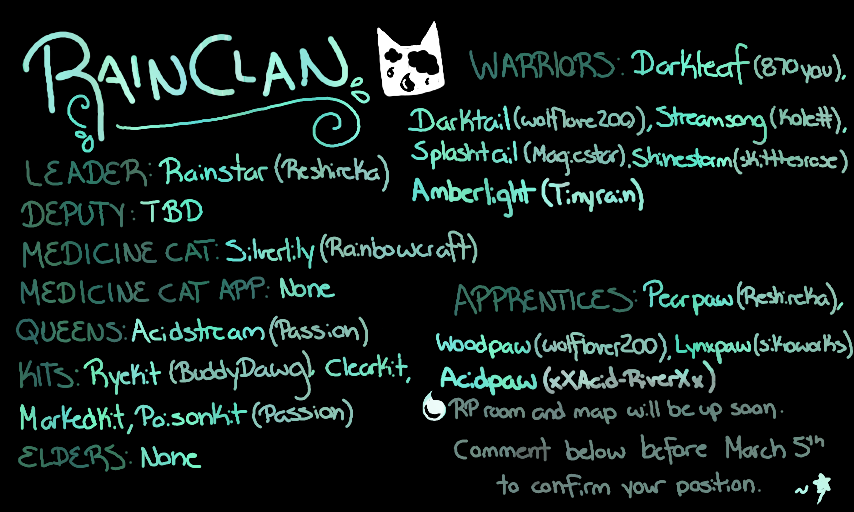 RAINCLAN
LEADER: Rainstar (Reshireka)
DEPUTY: TBD
MEDICINE CAT: Silverlily (Rainbowcraft)
MEDICINE CAT APP: None
QUEENS: Acidstream (Passion)
KITS: Ryekit (BuddyDawg), Clearkit,
Markedkit, Poisonkit (Passion)
ELDERS: None
WARRIORS: Darkleaf (870you),
Darktail (wolflove200), Streamsong (Kole#),
Splashtail (Magicstar), Shinestorm (skittlesrose)
Amberlight (Tinyrain)
APPRENTICES: Pearpaw (Reshireka),
Woodpaw (wolflover200), Lynxpaw (sikoworks)
Acidpaw (xXAcid-RiverXx)
RP room and map will be up soon.
Comment below before March 5th
to confirm your position.